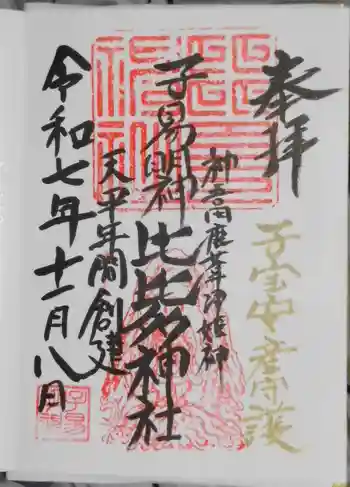 奉拝
子宝安産守護
神吾田鹿葦津姫神
子易明神 比比多神社
天平年間創建
令和七年十二月八日